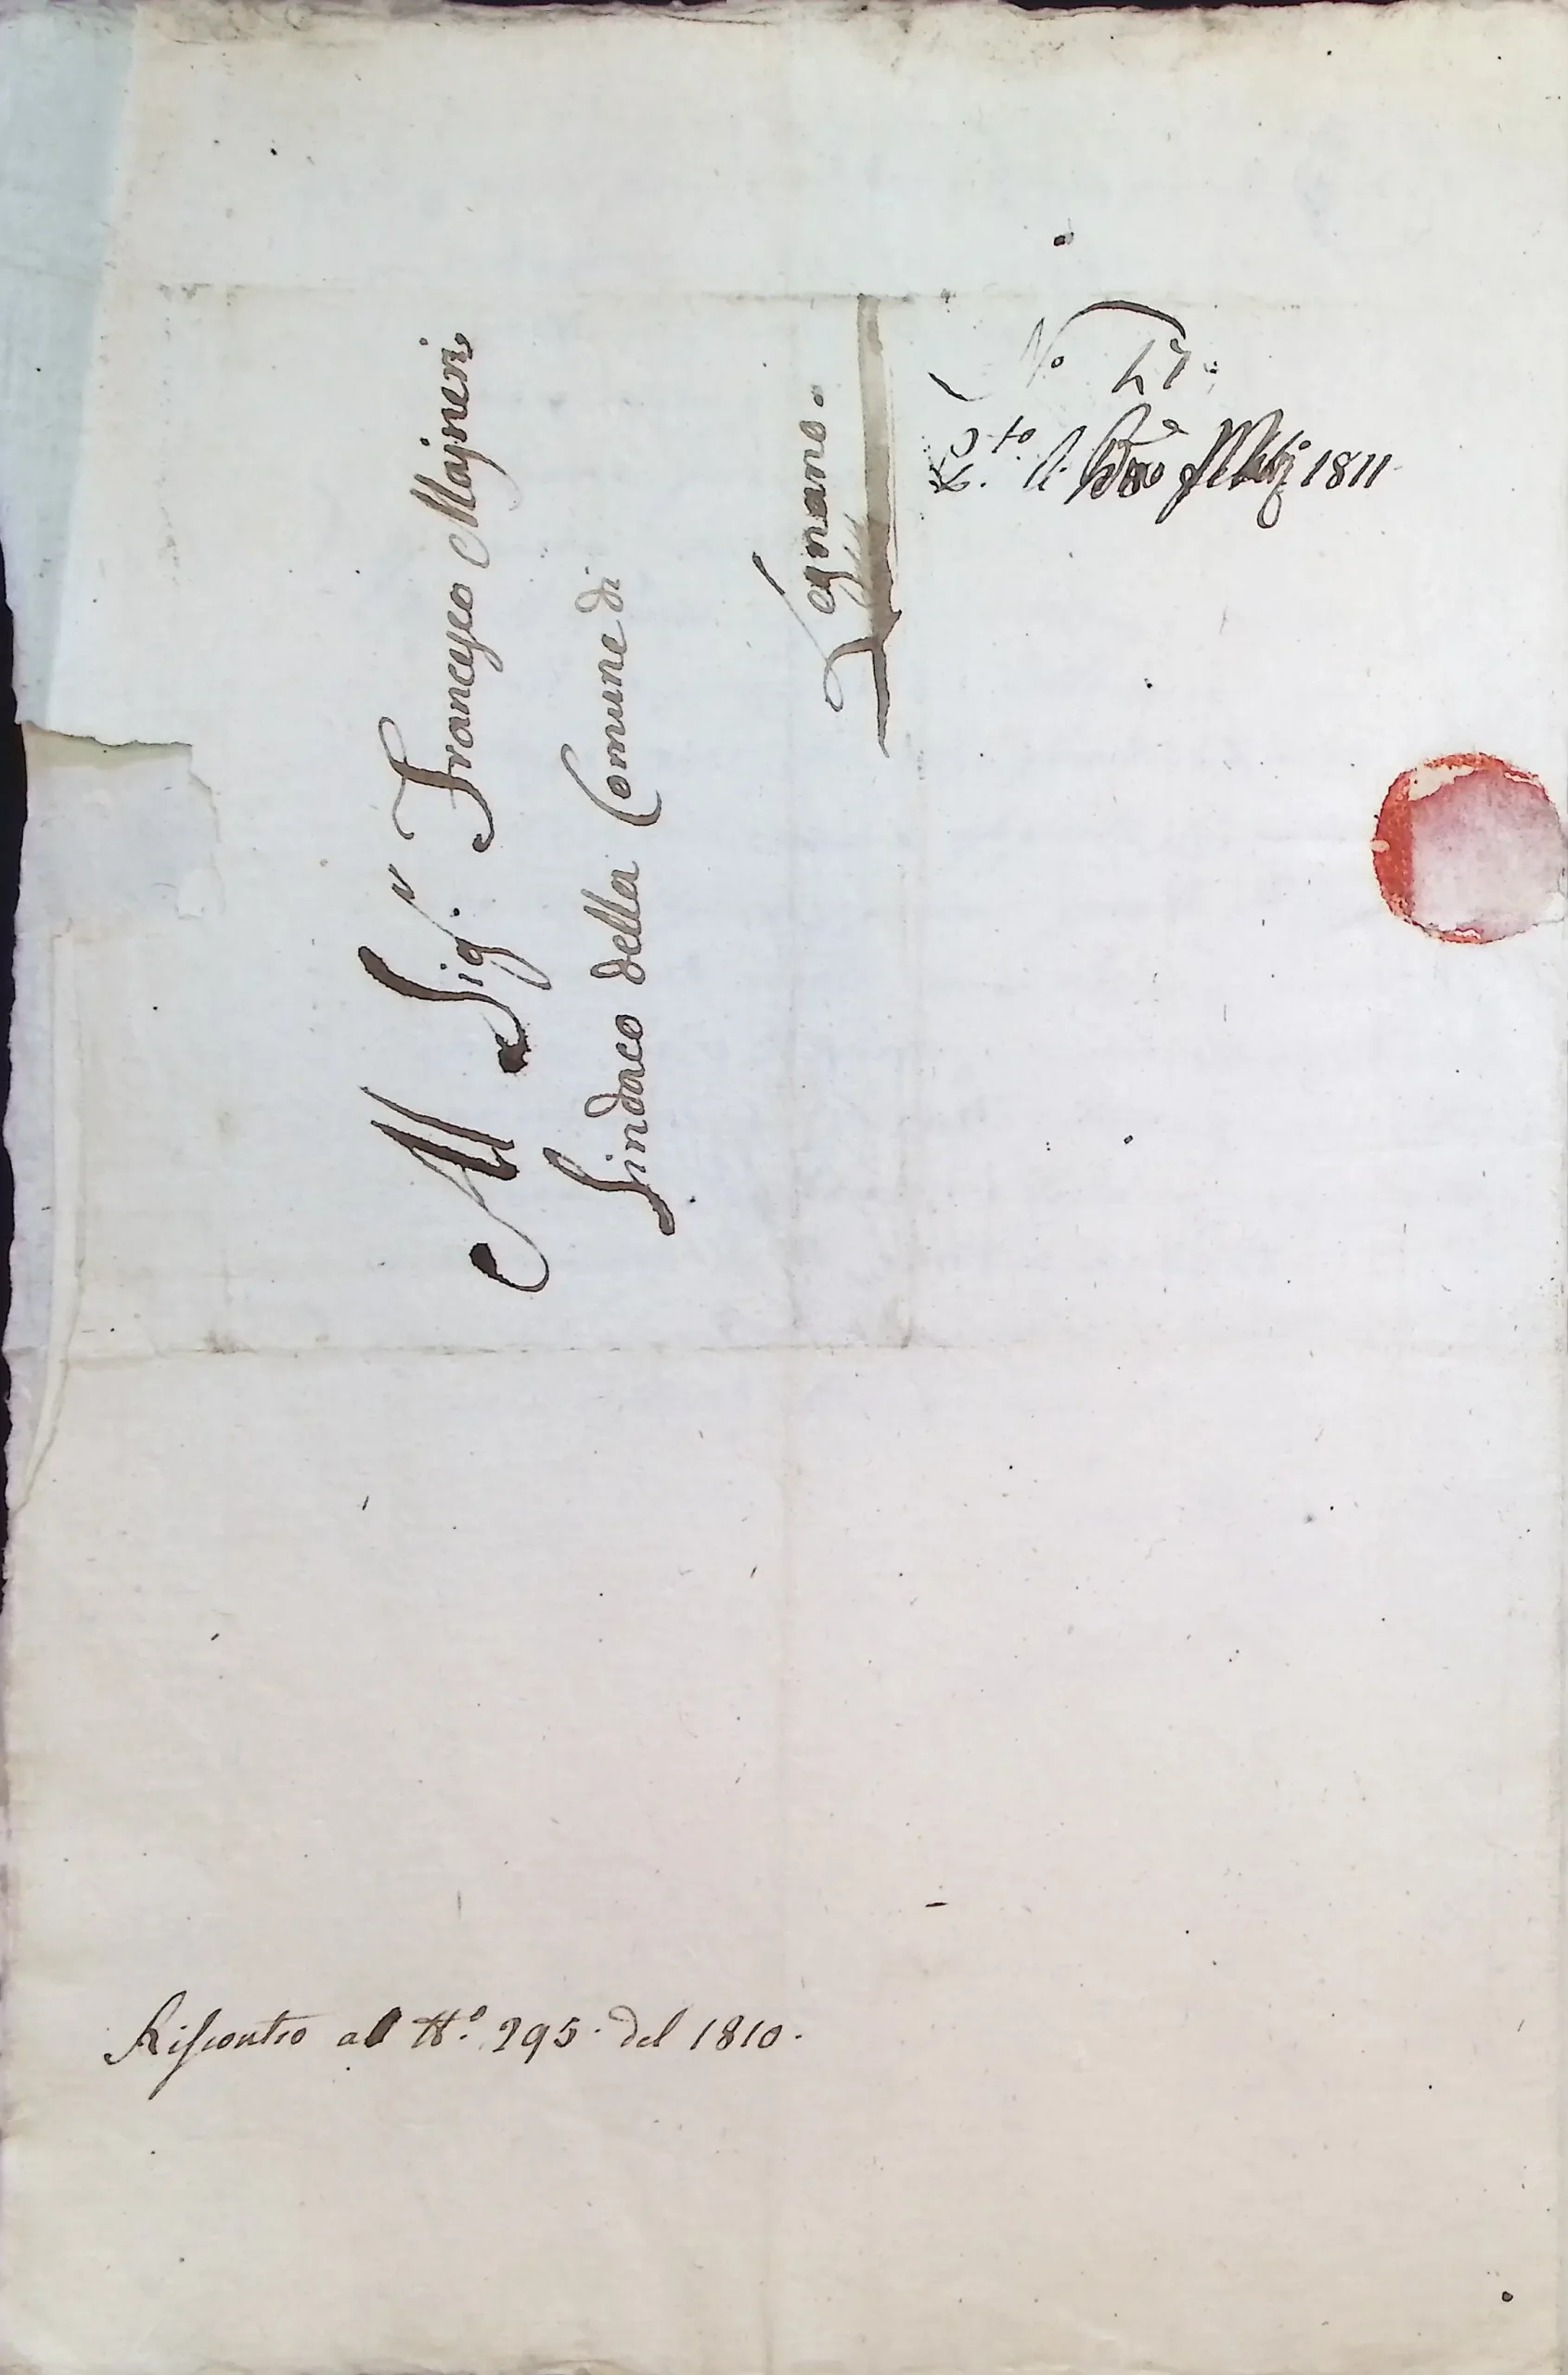 Al Sig.r Francesco Majneri
Sindaco della Comune di
Legnano.
No
1811
Riscontro al N.o 295. del 1810.